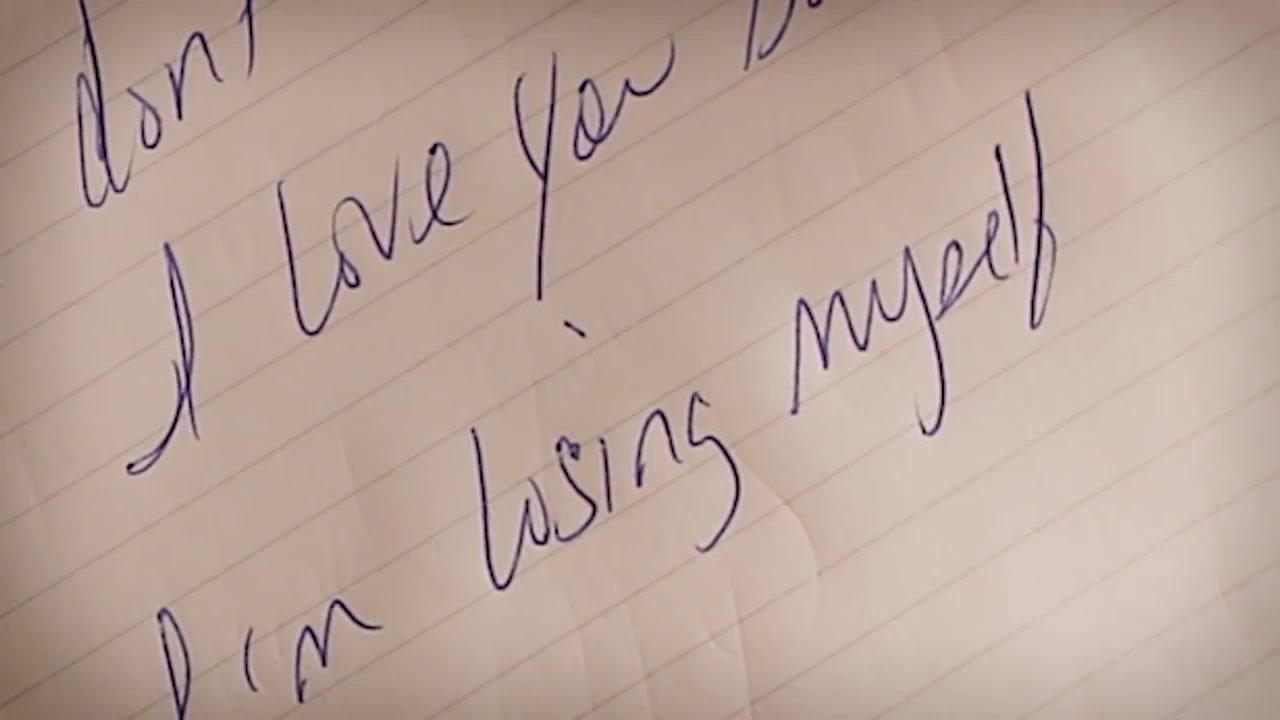 don't
I love you
losing myself
I'm